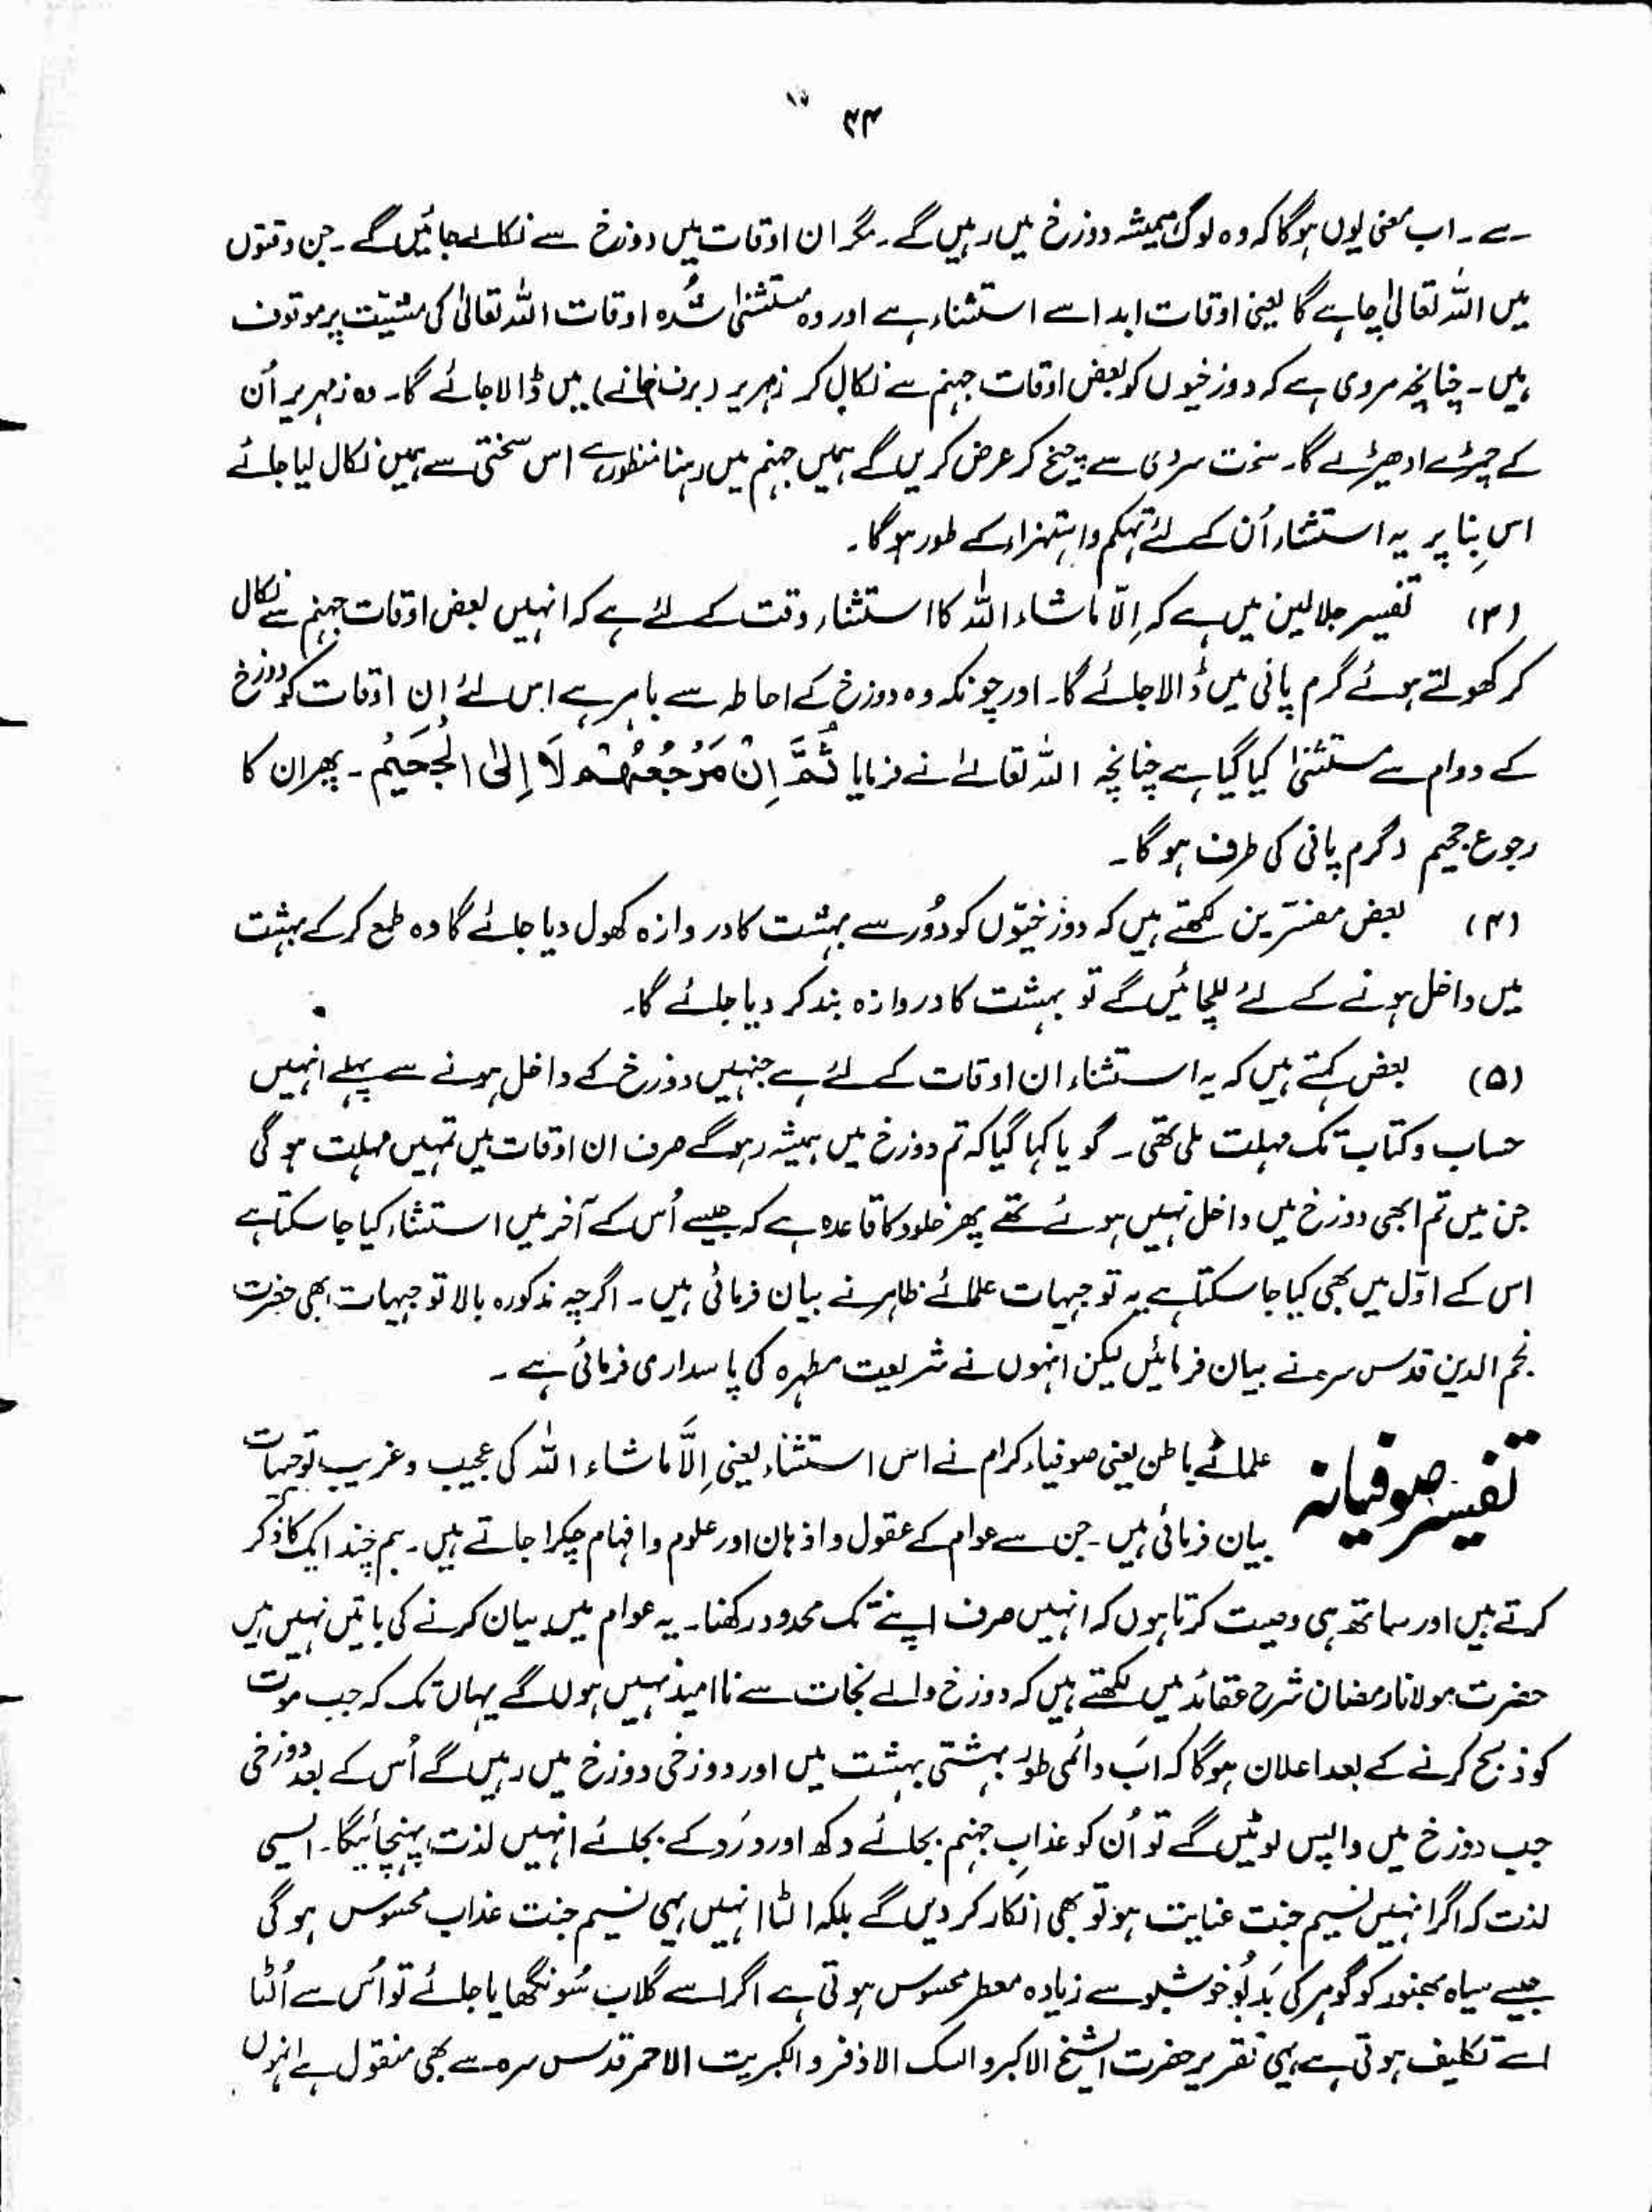 ۳۴
ہے ۔ اب معنی یوں ہوگا کہ وہ لوگ ہمیشہ دوزخ میں رہیں گے ۔ مگر ان اوقات میں دوزخ سے نکالے جائیں گے ۔ جن وقتوں
میں اللہ تعالیٰ چاہے گا یعنی اوقات ابد اسے استثناء ہے اور وہ مستثنیٰ شدہ اوقات اللہ تعالیٰ کی مشیّت پر موقوف
ہیں ۔ چنانچہ مروی ہے کہ دوزخیوں کو بعض اوقات جہنم سے نکال کر زمہریر (برف خانے) میں ڈالا جائے گا ۔ وہ زمہریر اُن
کے چمڑے ادھیڑے گا ۔ سخت سردی سے چیخ کر عرض کریں گے ہمیں جہنم میں رہنا منظور ہے اس سختی سے ہمیں نکال لیا جائے
اس بِنا پر یہ استثناء اُن کے لئے تہکم و استہزاء کے طور ہو گا ۔
(۳) تفسیر جلالین میں ہے کہ اِلّا ماشاء اللہ کا استثناء وقت کے لئے ہے کہ انہیں بعض اوقات جہنم سے نکال
کر کھولتے ہوئے گرم پانی میں ڈالا جائے گا ۔ اور چونکہ وہ دوزخ کے احاطہ سے باہر ہے اس لئے اِن اوقات کو دوزخ
کے دوام سے مستثنیٰ کیا گیا ہے چنانچہ اللہ تعالےٰ نے فرمایا ثُمَّ اِنَّ مَرْجِعَهُمْ لَا اِلیٰ الْجَحِیْمِ ۔ پھر ان کا
رجوع جحیم (گرم پانی کی طرف ہو گا ۔
(۴) بعض مفسّرین لکھتے ہیں کہ دوزخیّوں کو دُور سے بہشت کا دروازہ کھول دیا جائے گا وہ طمع کر کے بہشت
میں داخل ہونے کے لئے للچائیں گے تو بہشت کا دروازہ بند کر دیا جائے گا ۔
(۵) بعض کہتے ہیں کہ یہ استثناء ان اوقات کے لئے ہے جنہیں دوزخ کے داخل ہونے سے پہلے انہیں
حساب و کتاب تک مہلت ملی تھی ۔ گویا کہا گیا کہ تم دوزخ میں ہمیشہ رہو گے صرف ان اوقات میں تمہیں مہلت ہو گی
جن میں تم ابھی دوزخ میں داخل نہیں ہوئے تھے پھر خلود کا قاعدہ ہے کہ جیسے اُس کے آخر میں استثناء کیا جا سکتا ہے
اس کے اوّل میں بھی کیا جا سکتا ہے یہ توجیہات علمائے ظاہر نے بیان فرمائی ہیں ۔ اگرچہ مذکورہ بالا توجیہات بھی حضرت
نجم الدین قدس سرہ نے بیان فرمائیں لیکن انہوں نے شریعت مطہرہ کی پاسداری فرمائی ہے ۔
تفسیر صوفیانہ علمائے باطن یعنی صوفیاء کرام نے اس استثناء یعنی اِلَّا ماشاء اللہ کی عجیب و غریب توجیہات
بیان فرمائی ہیں ۔ جن سے عوام کے عقول و اذہان اور علوم و افہام چکرا جاتے ہیں ۔ ہم چند ایک کا ذکر
کرتے ہیں اور ساتھ ہی وصیت کرتا ہوں کہ انہیں صرف اپنے تک محدود رکھنا ۔ یہ عوام میں بیان کرنے کی باتیں نہیں ہیں
حضرت مولانا رمضان شرح عقائد میں لکھتے ہیں کہ دوزخ والے نجات سے نا امید نہیں ہوں گے یہاں تک کہ جب موت
کو ذبح کرنے کے بعد اعلان ہوگا کہ اَب دائمی طور بہشتی بہشت میں اور دوزخی دوزخ میں رہیں گے اُس کے بعد دوزخی
جب دوزخ میں واپس لوٹیں گے تو اُن کو عذابِ جہنم بجائے دکھ اور دَرد کے بجائے انہیں لذت پہنچائیگا ۔ ایسی
لذت کہ اگر انہیں نسیم جنت عنایت ہو تو بھی انکار کر دیں گے بلکہ الٹا انہیں یہی نسیم جنت عذاب محسوس ہو گی
جیسے سیاہ بھنور کو گوہر کی بَدبُو خوشبو سے زیادہ معطر محسوس ہوتی ہے اگر اسے گلاب سُونگھایا جائے تو اُس سے اُلٹا
اسے تکلیف ہوتی ہے یہی تقریر حضرت الشیخ الاکبر والمسک الاذفر والکبریت الاحمر قدس سرہ سے بھی منقول ہے انہوں